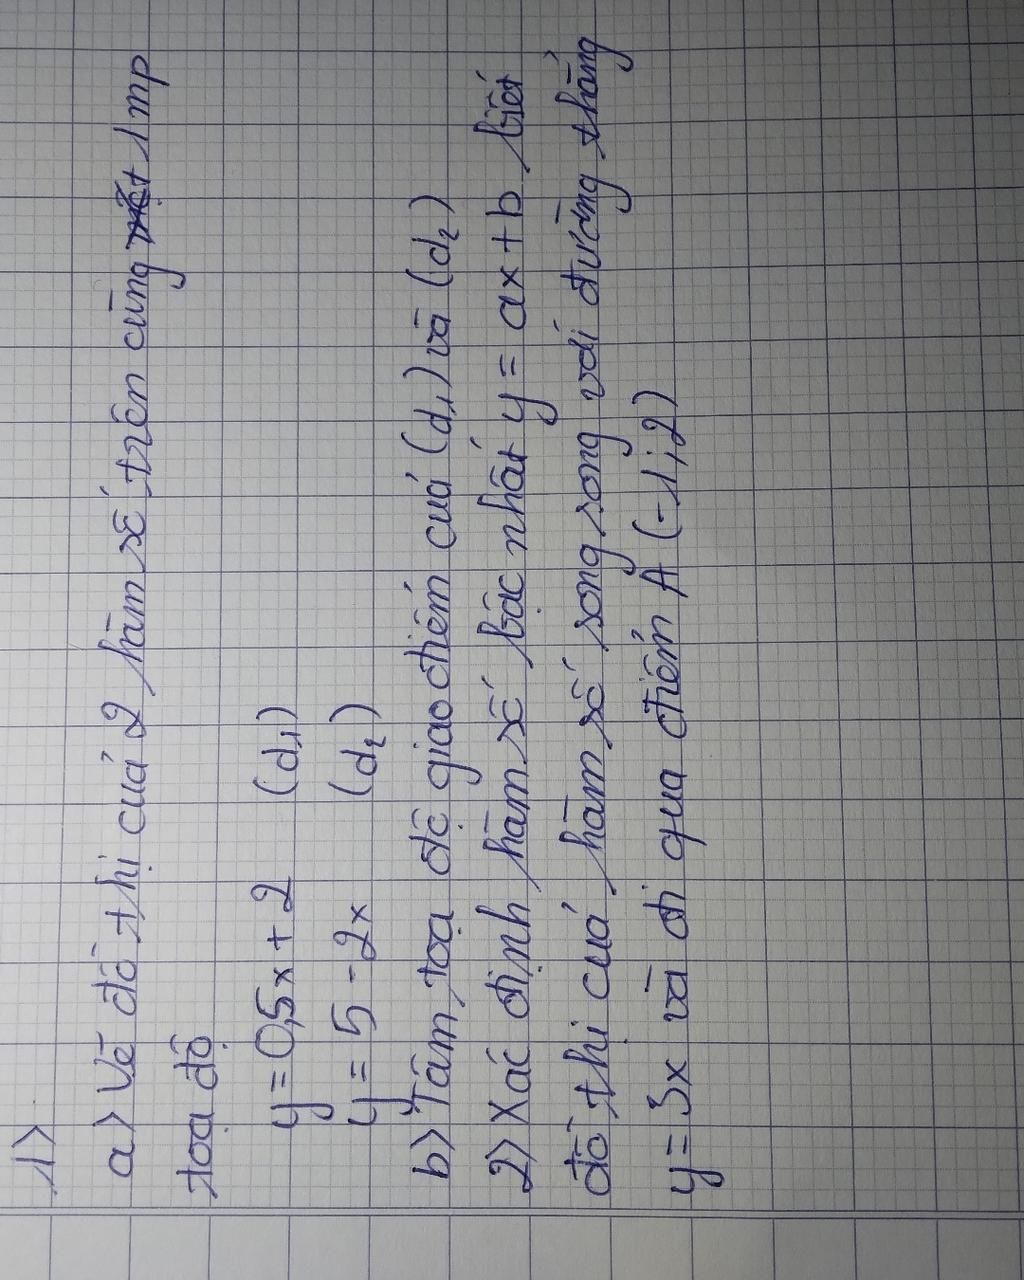 1>
a> Vẽ đồ thị của 2 hàm số trên cùng 1 mp
toạ độ
y = 0,5x + 2 (d₁)
y = 5 - 2x (d₂)
b> Tâm toạ độ giao điểm của (d₁) và (d₂)
2> Xác định hàm số bậc nhất y = ax + b biết
đồ thị của hàm số song song với đường thẳng
y = 3x và đi qua điểm A (-1; 2)